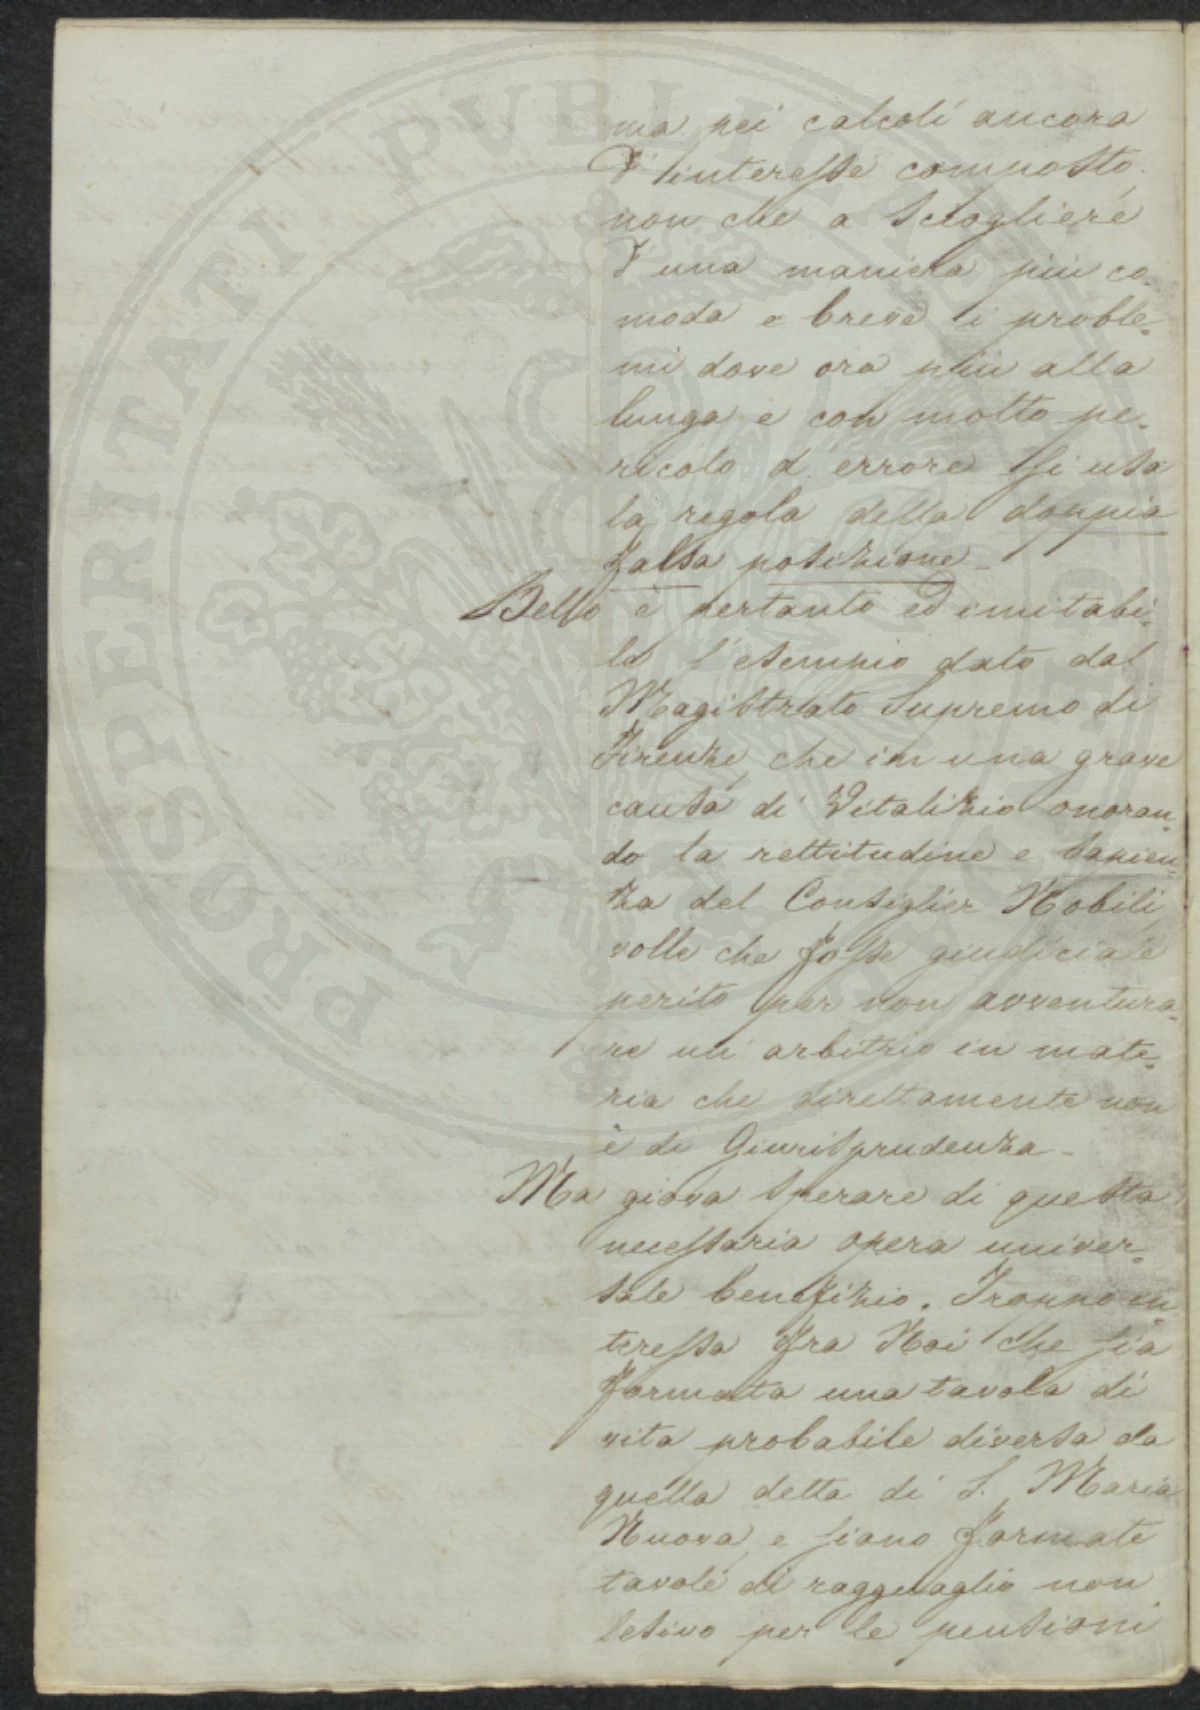 ma pei calcoli ancora
d'interesse composto,
non che a sciogliere
d'una maniera più co-
moda e breve i proble-
mi dove ora più alla
lunga e con molto pe-
ricolo d'errore si usa
la regola della doppia
falsa posizione -
Bello è pertanto ed imitabi-
le l'esempio dato dal
Magistrato Supremo di
Firenze, che in una grave
causa di Vitalizio onoran-
do la rettitudine e sapien-
za del Consiglier Nobili
volle che fosse giudiciale
perito per non avventura-
re un arbitrio in mate-
ria che direttamente non
è di Giurisprudenza -
Ma giova sperare di questa
necessaria opera univer-
sale benefizio. Troppo in
teressa fra Noi che sia
formata una tavola di
vita probabile diversa da
quella detta di S. Maria
Nuova, e siano formate
tavole di ragguaglio non
lesivo per le pensioni
PROSPERITATI PUBLICAE